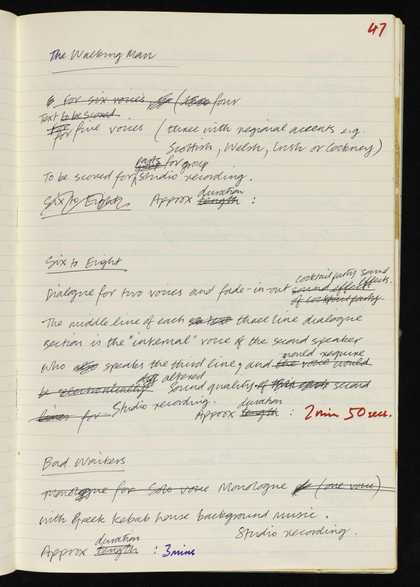 47
The Walking Man
6. For six voices (three four
Text to be scored
for five voices (three with regional accents e.g.
Scottish, Welsh, Irish or Cockney)
parts for group
To be scored for studio recording.
Six to Eight
duration
Approx length :
Six to Eight
cocktail party sound
effects.
Dialogue for two voices and fade-in-out sound effects
of cocktail party.
The middle line of each three line dialogue
section is the "internal" voice of the second speaker
would require
who also speaks the third line, and the voice would
altered
be sound quality of this each second
lines for Studio recording.
duration
Approx length : 2 min 50 secs.
Bad Waiters
Monologue for solo voice Monologue (one voice)
with Greek Kebab house background music.
Studio recording.
duration
Approx length : 3 mins